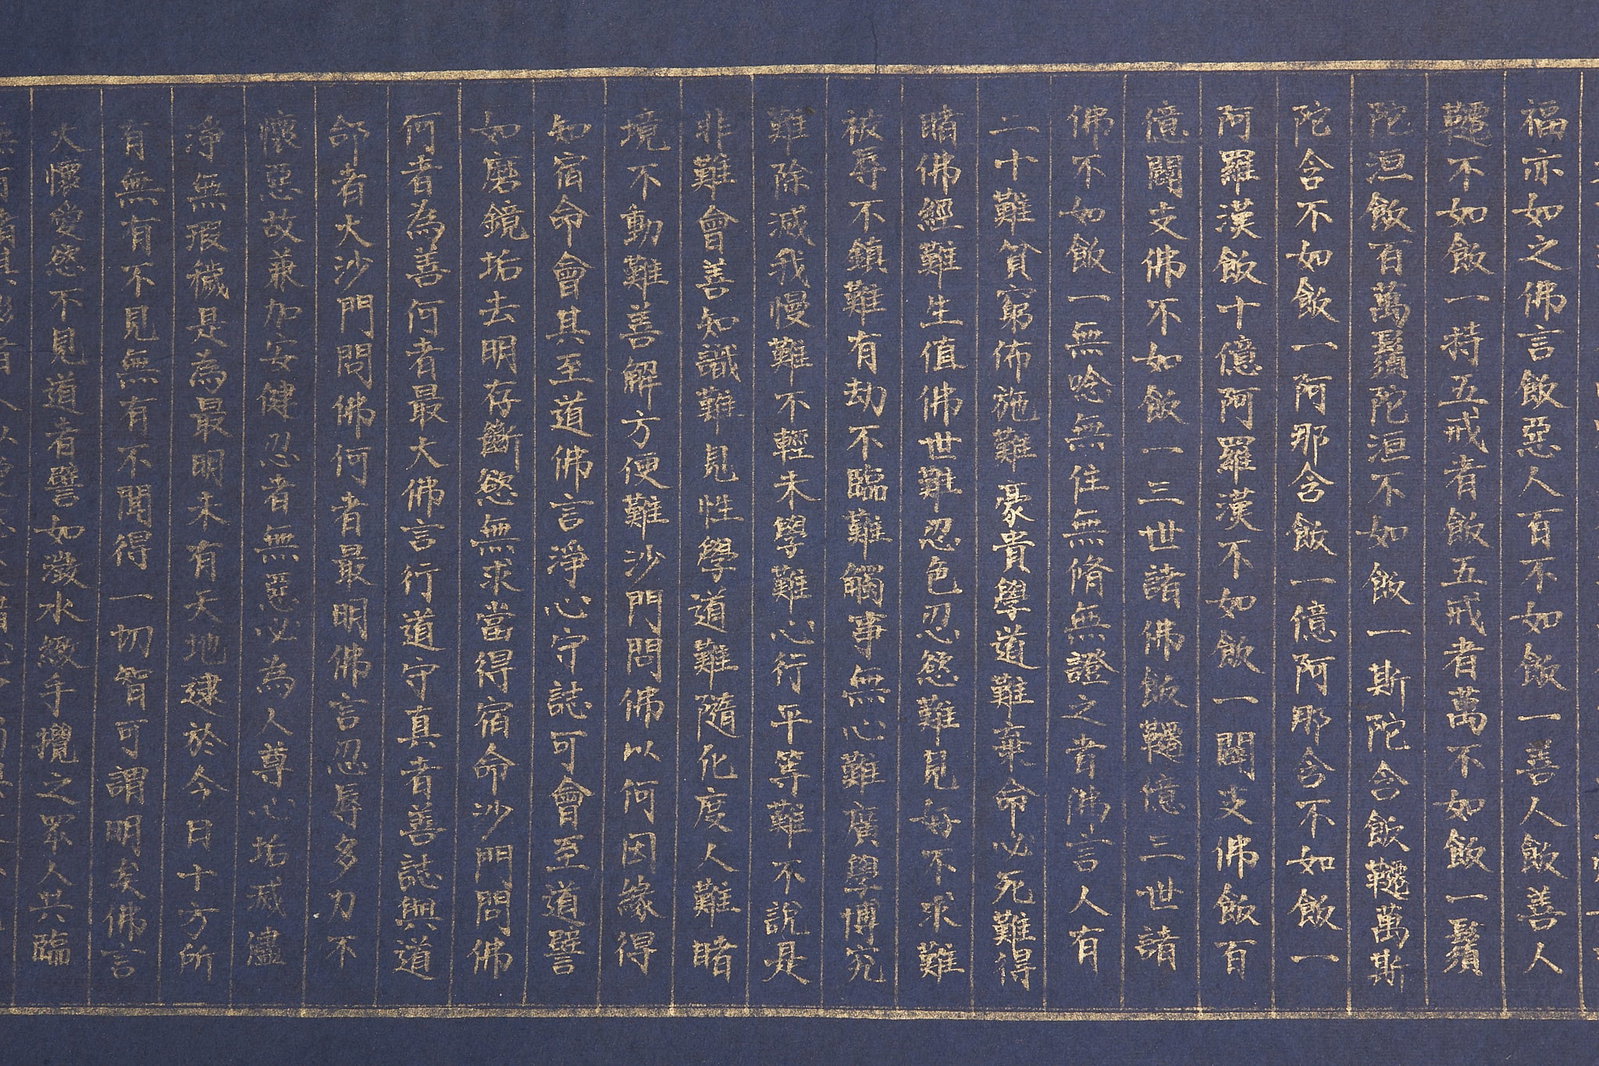 福亦如之佛言飯惡人百不如飯一善人飯善人
韆不如飯一持五戒者飯五戒者萬不如飯一鬚
陀洹飯百萬鬚陀洹不如飯一斯陀含飯韆萬斯
陀含不如飯一阿那含飯一億阿那含不如飯一
阿羅漢飯十億阿羅漢不如飯一闢支佛飯百
億闢支佛不如飯一三世諸佛飯韆億三世諸
佛不如飯一無唸無住無脩無證之者佛言人有
二十難貧窮佈施難豪貴學道難棄命必死難得
睹佛經難生值佛世難忍色忍慾難見好不求難
被辱不鎮難有劫不臨難觸事無心難廣學博究
難除滅我慢難不輕未學難心行平等難不說是
非難會善知識難見性學道難隨化度人難睹
境不動難善解方便難沙門問佛以何因緣得
知宿命會其至道佛言淨心守誌可會至道譬
如磨鏡垢去明存斷慾無求當得宿命沙門問佛
何者為善何者最大佛言行道守真者善誌與道
郃者大沙門問佛何者最明佛言忍辱多力不
懷惡故兼加安健忍者無惡必為人尊心垢滅儘
淨無瑕穢是為最明未有天地逮於今日十方所
有無有不見無有不聞得一切智可謂明矣佛言
人懷愛慾不見道者譬如澂水緻手攪之眾人共臨